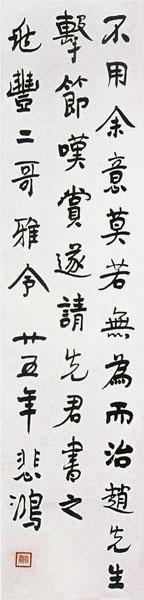 不用余意莫若無為而治趙先生
擊節嘆賞遂請先君書之
兆豐二哥雅令 廿五年 悲鴻